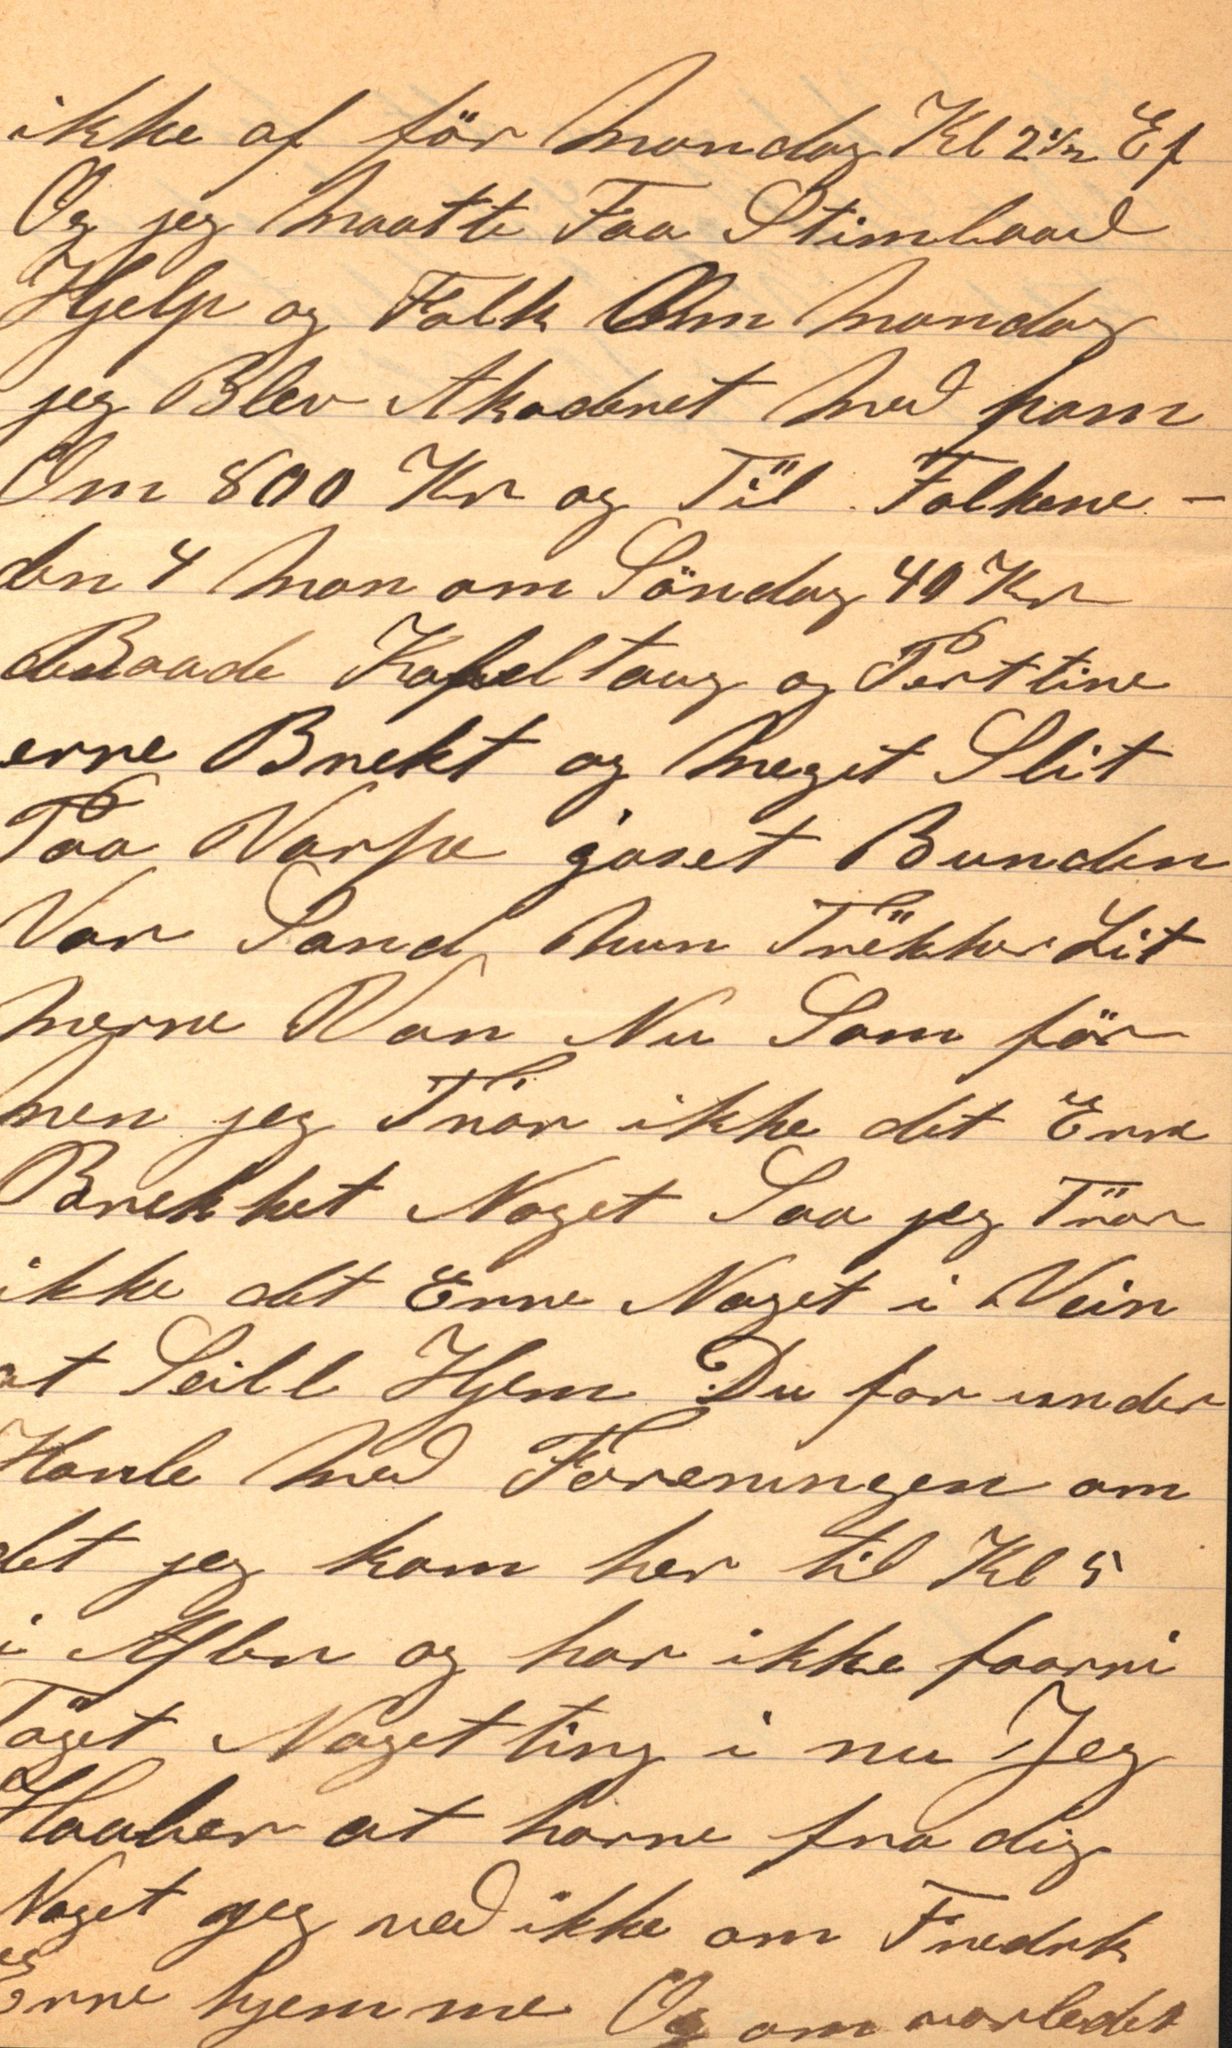 ikke af för Mondag Kl 2½ Ef
Og jeg Maatte Faa Stimbaad
Hjelp og Folk Om Mondag
jeg Blev Akoderet Med ham
Om 800 Kr og Til Folkene -
den 4 Man om Söndag 40 Kr
Baade Kapeltaug og Perttine
erre Brekt og Meget Slit
Paa Varpe gaaet Bunden
Var Sand hun Trekker Lit
Merre Van Nu Som för
men jeg Tror ikke det Erre
Brekket Noget Saa jeg Tror
ikke det Erre Noget i Vein
at Seill Hjem Du for under
Hanle Med Foreningen om
det jeg kom her til Kl 5
i Aften og har ikke faarni
Taget Noget ting i nu Jeg
Haaber at hørre fra dig
Noget jeg ved ikke om Fredrk
Erre hjemme Og om vorledet